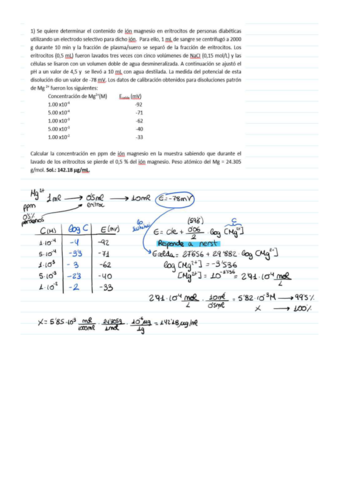 1) Se quiere determinar el contenido de ión magnesio en eritrocitos de personas diabéticas
utilizando un electrodo selectivo para dicho ión. Para ello, 1 mL de sangre se centrifugó a 2000
g durante 10 min y la fracción de plasma/suero se separó de la fracción de eritrocitos. Los
eritrocitos (0,5 mL) fueron lavados tres veces con cinco volúmenes de NaCl (0,15 mol/L) y las
células se lisaron con un volumen doble de agua desmineralizada. A continuación se ajustó el
pH a un valor de 4,5 y se llevó a 10 mL con agua destilada. La medida del potencial de esta
disolución dio un valor de -78 mV. Los datos de calibración obtenidos para disoluciones patrón
de Mg2+ fueron los siguientes:
Concentración de Mg2+(M) (mV)
1.00 x10-4 -92
5.00 x10-4 -71
1.00 x10-3 -62
5.00 x10-3 -40
1.00 x10-2 -33
Calcular la concentración en ppm de ión magnesio en la muestra sabiendo que durante el
lavado de los eritrocitos se pierde el 0,5 % del ión magnesio. Peso atómico del Mg = 24,305
g/mol. Sol.: 142.18 µg/mL.
Mg2+ 1mL → 0'5mL → 10mL E=-78mV
ppm
0'5%
C(M) log C E(mV)
E = cte + 0'06/2 log [Mg2+]
1·10-4 -4 -92
Responde a nerst
5·10-4 -3'3 -71
1·10-3 -3 -62
log [Mg2+] = -3'536
5·10-3 -2'3 -40
1·10-2 -2 -33
2'91·10-4 mol/L · 10ml/0'5ml = 5'82·10-3 M → 99'5%
X → 100%